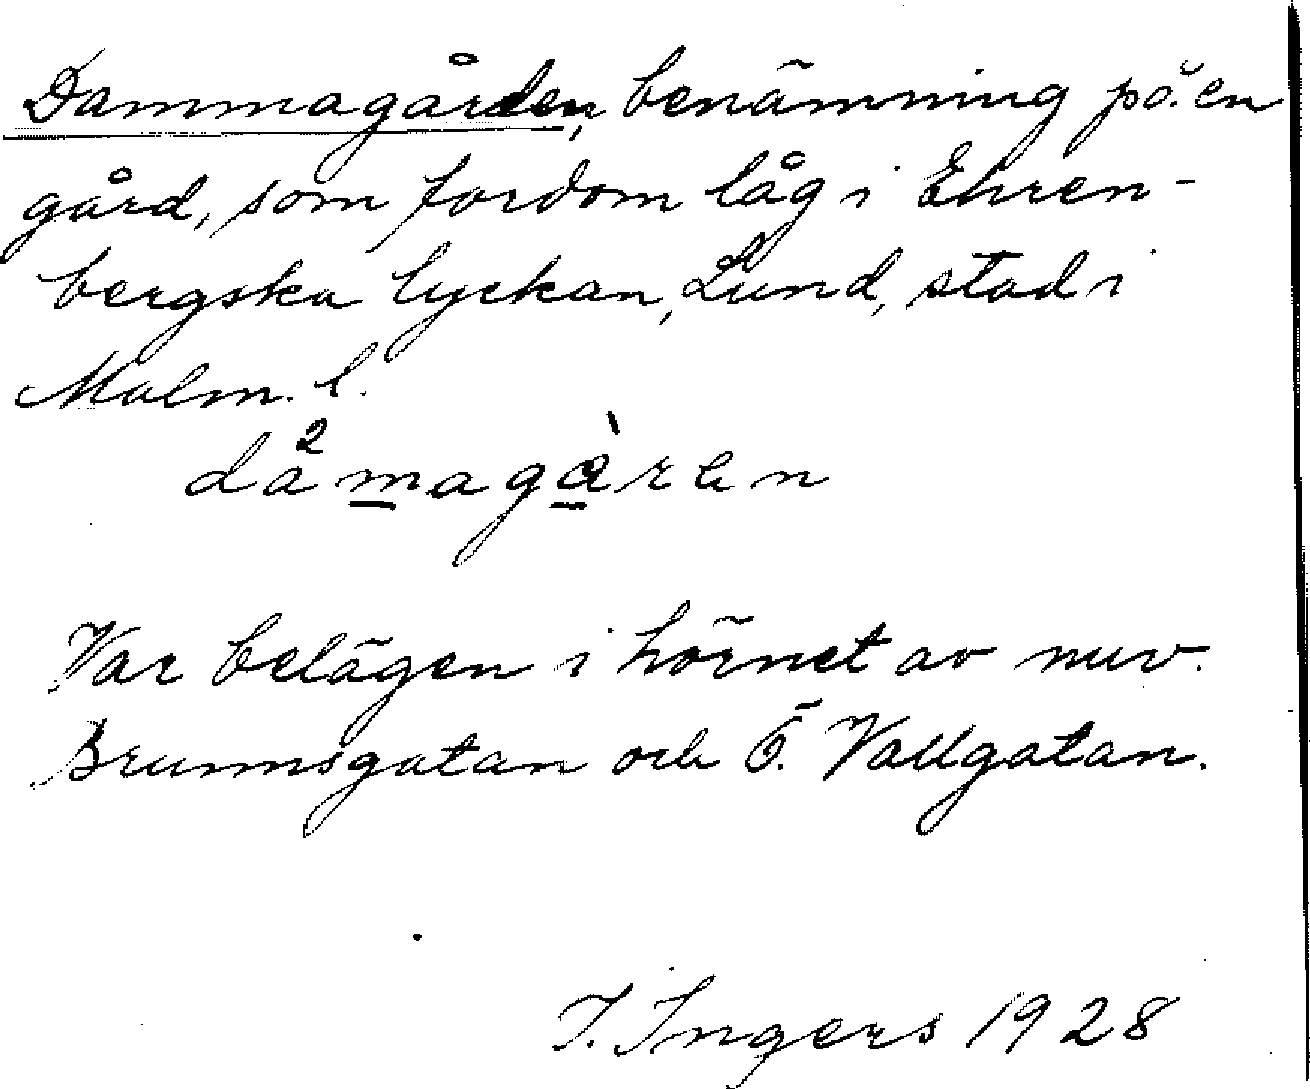 Dammagården, benämning på en
gård, som fordom låg i Ehren-
bergska lyckan, Lund, stad i
Malm. l.
då²magàren
Var belägen i hörnet av nuv.
Brunnsgatan och Ö. Vallgatan.
I. Ingers 1928